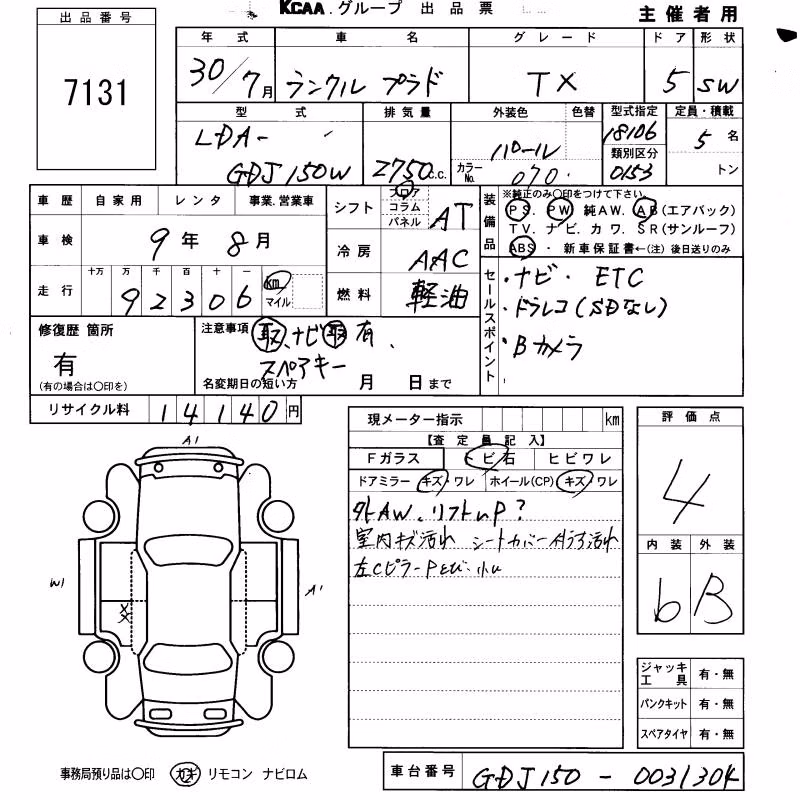 KCAA.グループ 出品票
主催者用
出品番号
7131
年式 車名 グレード ドア 形状
30/7月 ランクル プラド TX 5 SW
型式 排気量 外装色 色替 型式指定 定員・積載
LDA-
GDJ150W 2750c.c. パール 18106 5名
カラーNo. 070 類別区分 0153 トン
車歴 自家用 レンタ 事業.営業車
車検 9年 8月
走行 十万 万 千 百 十 一
92306 km マイル
シフト フロア コラム パネル AT
冷房 AAC
燃料 軽油
装備品
※純正のみ〇印をつけて下さい。
PS. PW 純AW. AB(エアバック)
TV. ナビ. カワ. SR(サンルーフ)
ABS ・ 新車保証書←(注) 後日送りのみ
セールスポイント
・ナビ・ ETC
・ドラレコ(SDなし)
・Bカメラ
修復歴 箇所
有
(有の場合は〇印を)
注意事項 取、ナビ取有、
スペアキー
名変期日の短い方 月 日まで
リサイクル料 14140円
現メーター指示 km
【査定員記入】
Fガラス トビ石 ヒビワレ
ドアミラー キズ・ワレ ホイール(CP) キズ・ワレ
外AW、リフトuP?
室内キズ汚れ シートカバー
左Cピラー
評価点
4
内装 外装
6 B
A1
W1
A1
ジャッキ工具 有・無
パンクキット 有・無
スペアタイヤ 有・無
事務局預り品は〇印 カギ リモコン ナビロム
車台番号 GDJ150-0031304